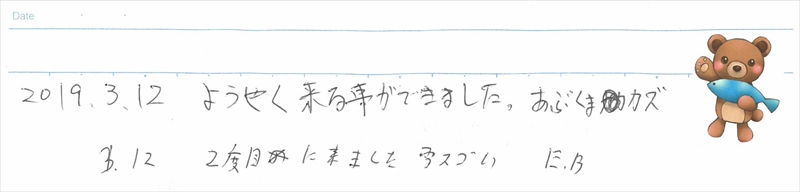 Date
2019.3.12 ようせく来る事ができました。あぶくまのカズ
3.12 2度目に来ました 雪スゴい E.B